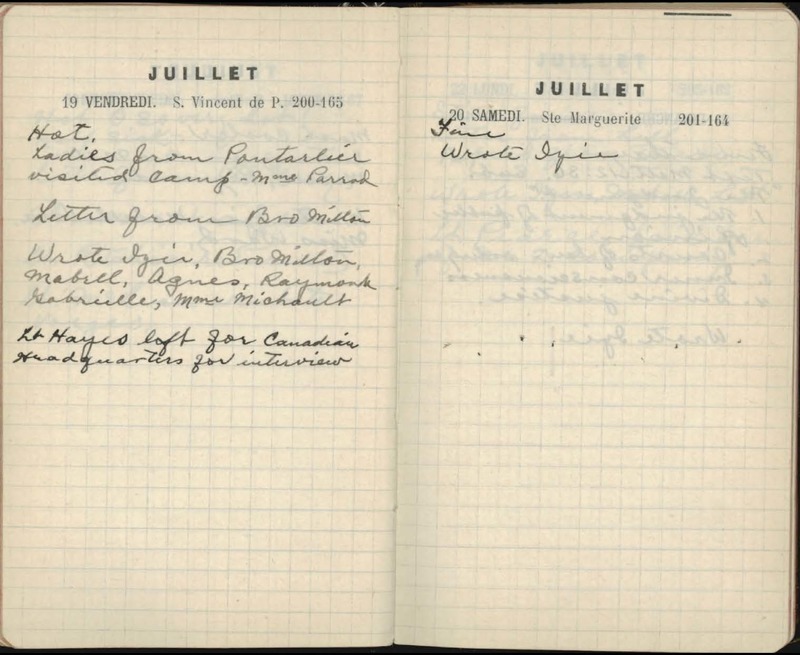 JUILLET
19 VENDREDI. S. Vincent de P. 200-165
Hot.
Ladies from Pontarlier
visited Camp - Mme Parrod
Letter from Bro Milton
Wrote Izie, Bro Milton,
Mabell, Agnes, Raymonde
Gabrielle, Mme Michault
Lt Hayes left for Canadian
Headquarters for interview
JUILLET
20 SAMEDI. Ste Marguerite 201-164
Fine
Wrote Izie